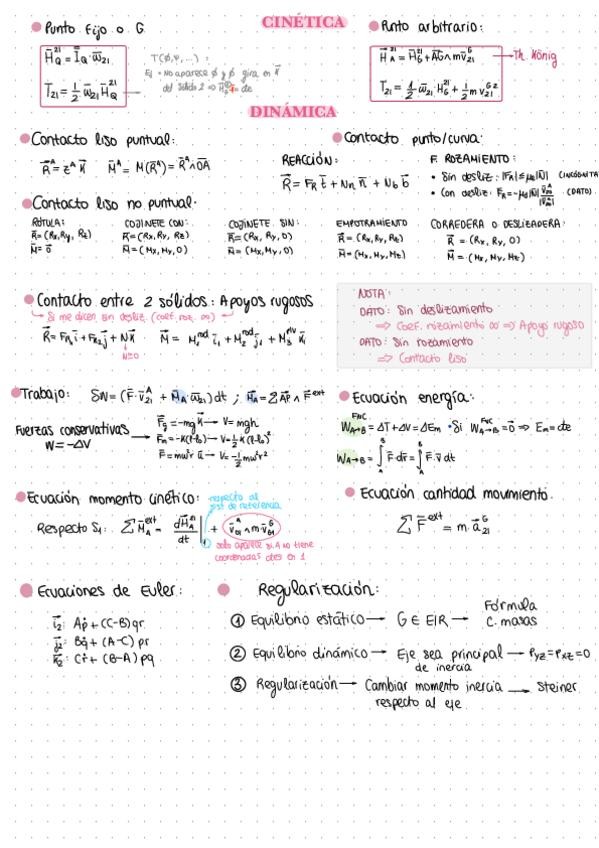 CINÉTICA
Punto fijo o G
H̄_Q^21 = Ī_Q · ω̄_21
T_21 = 1/2 · ω̄_21 · H̄_Q^21
T(φ, ψ, ...) :
Punto arbitrario:
H̄_A^21 = H̄_G^21 + AG ∧ m v̄_21^G → Th. König
T_21 = 1/2 · ω̄_21 · H_G^21 + 1/2 m v_21^G 2
DINÁMICA
Contacto liso puntual:
R̄^A = Z^A K̄ M̄^A = M(R̄^A) = R̄^A ∧ OA
Contacto punto/curva:
REACCIÓN:
R̄ = F_R t̄ + N_n n̄ + N_b b̄
F. ROZAMIENTO:
• Sin desliz: |F_R| ≤ μ|N̄| (INCÓGNITA)
• Con desliz: F_R = -μ|N̄| v̄_21^A / |v̄_21^A| (DATO)
Contacto liso no puntual:
RÓTULA: COJINETE CON: COJINETE SIN: EMPOTRAMIENTO CORREDERA O DESLIZADERA:
R̄ = (Rx, Ry, Rz) R̄ = (Rx, Ry, Rz) R̄ = (Rx, Ry, 0) R̄ = (Rx, Ry, Rz) R̄ = (Rx, Ry, 0)
M̄ = 0̄ M̄ = (Mx, My, 0) M̄ = (Mx, My, 0) M̄ = (Mx, My, Mz) M̄ = (Mx, My, Mz)
Contacto entre 2 sólidos: Apoyos rugosos
Si me dicen sin desliz. (coef. roz. ∞)
R̄ = F_R1 i + F_R2 j + N k̄ M̄ = M_1^rod i_1 + M_2^rod j_1 + M_3^piv k_1
N≥0
NOTA:
DATO: Sin deslizamiento
⇒ Coef. rozamiento ∞ ⇒ Apoyo rugoso
DATO: Sin rozamiento
⇒ Contacto liso
Trabajo: δW = (F̄ · v̄_21^A + M̄_A · ω̄_21) dt ; M̄_A = Σ AP ∧ F^ext
Fuerzas conservativas
W = -ΔV
F̄_g = -mg K̄ → V = mgh
F̄_m = -K(l-l₀) → V = 1/2 K (l-l₀)²
F̄ = mω²r ū → V = -1/2 mω²r²
Ecuación energía:
W_A→B^FNC = ΔT + ΔV = ΔEm • Si W_A→B^FNC = 0 ⇒ Em = cte
W_A→B = ∫_A^B F̄ dr̄ = ∫_A^B F̄ · v̄ dt
Ecuación momento cinético:
respecto al
sist de referencia
Respecto S₁: Σ M̄_A^ext = dH̄_A^21 / dt |_1 + v̄_01^A ∧ m · v̄_21^G
solo aparece si A no tiene
coordenadas ctes en 1
Ecuación cantidad movimiento.
Σ F̄^ext = m · ā_21^G
Ecuaciones de Euler:
i₂: Aṗ + (C-B)qr
j₂: Bq̇ + (A-C) pr
k₂: Cṙ + (B-A) pq
Regularización:
① Equilibrio estático → G ∈ EIR → Fórmula
C. masas
② Equilibrio dinámico → Eje sea principal → Pyz = Pxz = 0
de inercia
③ Regularización → Cambiar momento inercia → Steiner
respecto al eje